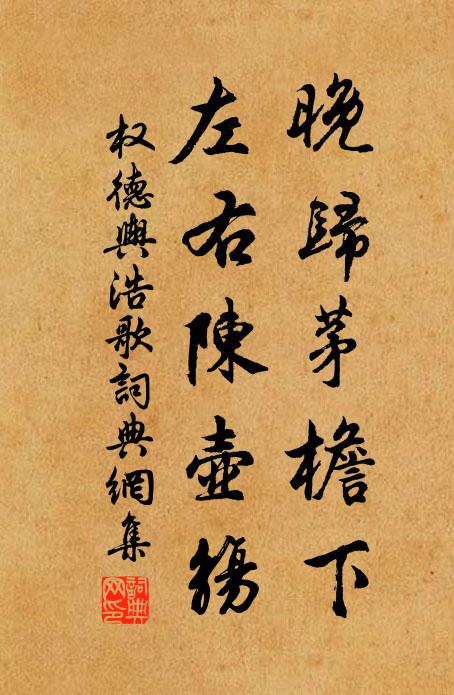 晚歸茅檐下
左右陳壺觴
权德輿浩歌詞典網集
詞典網印